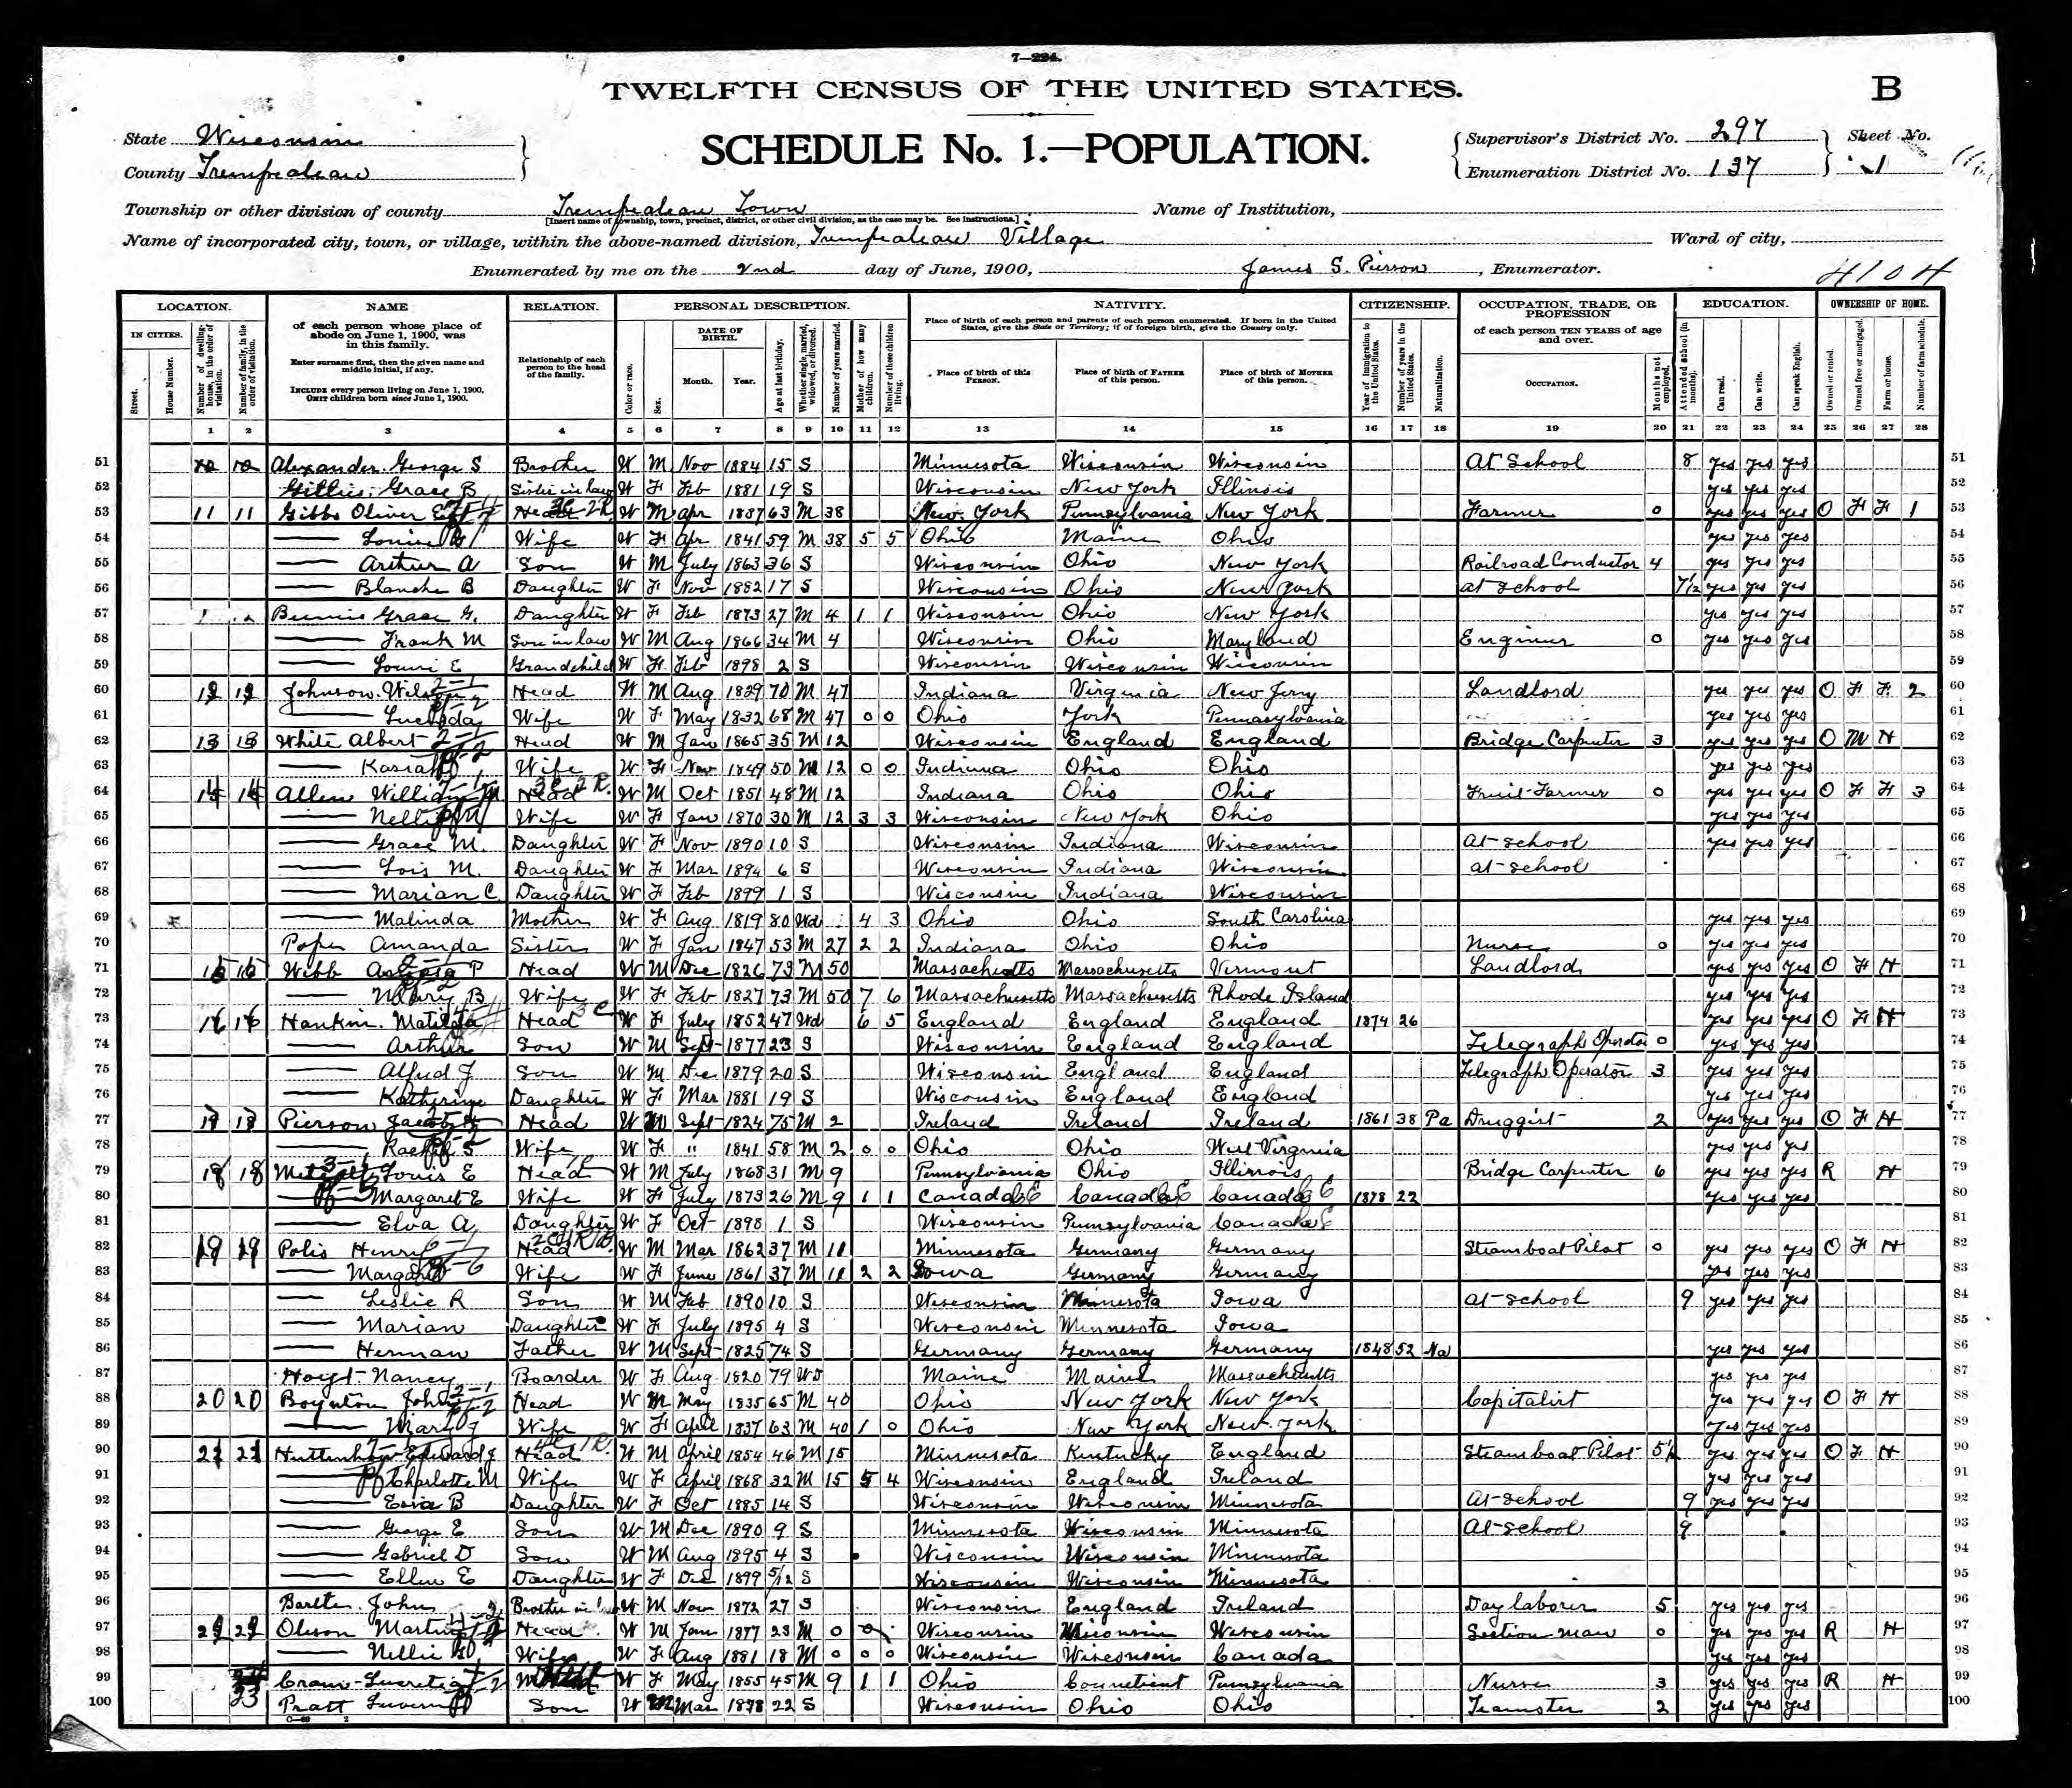 7—224.
TWELFTH CENSUS OF THE UNITED STATES.
B
State Wisconsin
County Trempealeau
SCHEDULE No. 1.—POPULATION.
Supervisor's District No. 297
Enumeration District No. 137
Sheet No. 1
Township or other division of county Trempealeau Town
[Insert name of township, town, precinct, district, or other civil division, as the case may be. See instructions.]
Name of Institution,
Name of incorporated city, town, or village, within the above-named division, Trempealeau Village
Ward of city,
Enumerated by me on the 2nd day of June, 1900, James S. Pierson, Enumerator.
4104
LOCATION. NAME RELATION. PERSONAL DESCRIPTION. NATIVITY. CITIZENSHIP. OCCUPATION, TRADE, OR PROFESSION EDUCATION. OWNERSHIP OF HOME.
IN CITIES. Street. House Number. Number of dwelling-house, in the order of visitation. Number of family, in the order of visitation.
of each person whose place of abode on June 1, 1900, was in this family.
Enter surname first, then the given name and middle initial, if any.
INCLUDE every person living on June 1, 1900. OMIT children born since June 1, 1900.
Relationship of each person to the head of the family.
Color or race. Sex. DATE OF BIRTH. Month. Year. Age at last birthday. Whether single, married, widowed, or divorced. Number of years married. Mother of how many children. Number of these children living.
Place of birth of each person and parents of each person enumerated. If born in the United States, give the State or Territory; if of foreign birth, give the Country only.
Place of birth of this PERSON. Place of birth of FATHER of this person. Place of birth of MOTHER of this person.
Year of immigration to the United States. Number of years in the United States. Naturalization.
of each person TEN YEARS of age and over.
OCCUPATION. Months not employed.
Attended school (in months). Can read. Can write. Can speak English.
Owned or rented. Owned free or mortgaged. Farm or house. Number of farm schedule.
1 2 3 4 5 6 7 8 9 10 11 12 13 14 15 16 17 18 19 20 21 22 23 24 25 26 27 28
51 Alexander George S Brother W M Nov 1884 15 S Minnesota Wisconsin Wisconsin At School 8 yes yes yes 51
52 Gillis Grace B Sister in law W F Feb 1881 19 S Wisconsin New York Illinois yes yes yes 52
53 11 11 Gibbs Oliver Head W M Apr 1837 63 M 38 New York Pennsylvania New York Farmer 0 yes yes yes O F F 1 53
54 Wife W F Apr 1841 59 M 38 5 5 Ohio Maine Ohio yes yes yes 54
55 Arthur A Son W M July 1863 36 S Wisconsin Ohio New York Railroad Conductor 4 yes yes yes 55
56 Blanche B Daughter W F Nov 1882 17 S Wisconsin Ohio New York at school 7½ yes yes yes 56
57 Grace G. Daughter W F Feb 1873 27 M 4 1 1 Wisconsin Ohio New York yes yes yes 57
58 Frank M Son in law W M Aug 1866 34 M 4 Wisconsin Ohio Maryland Enginer 0 yes yes yes 58
59 E Grandchild W F Feb 1898 2 S Wisconsin Wisconsin Wisconsin 59
60 12 12 Johnson Head W M Aug 1829 70 M 47 Indiana Virginia New Jersy Landlord yes yes yes O F F 2 60
61 Wife W F May 1832 68 M 47 0 0 Ohio York Pennsylvania yes yes yes 61
62 13 13 White Albert Head W M Jan 1865 35 M 12 Wisconsin England England Bridge Carpenter 3 yes yes yes O M H 62
63 Wife W F Nov 1849 50 M 12 0 0 Indiana Ohio Ohio yes yes yes 63
64 14 14 Allen William M Head W M Oct 1851 48 M 12 Indiana Ohio Ohio Fruit Farmer 0 yes yes yes O F F 3 64
65 Nellie M Wife W F Jan 1870 30 M 12 3 3 Wisconsin New York Ohio yes yes yes 65
66 Grace M. Daughter W F Nov 1890 10 S Wisconsin Indiana Wisconsin At school yes yes yes 66
67 Lois M. Daughter W F Mar 1894 6 S Wisconsin Indiana Wisconsin at school 67
68 Marian C. Daughter W F Feb 1899 1 S Wisconsin Indiana Wisconsin 68
69 Malinda Mother W F Aug 1819 80 Wd 4 3 Ohio Ohio South Carolina yes yes yes 69
70 Pope Amanda Sister W F Jan 1847 53 M 27 2 2 Indiana Ohio Ohio Nurse 0 yes yes yes 70
71 15 15 Webb P Head W M Dec 1826 73 M 50 Massachusetts Massachusetts Vermont Landlord yes yes yes O F H 71
72 Mary B Wife W F Feb 1827 73 M 50 7 6 Massachusetts Massachusetts Rhode Island yes yes yes 72
73 16 16 Hankin Matilda Head W F July 1852 47 Wd 6 5 England England England 1874 26 yes yes yes O F H 73
74 Arthur Son W M Sept 1877 23 S Wisconsin England England Telegraph Operator 0 yes yes yes 74
75 Alfred J Son W M Dec 1879 20 S Wisconsin England England Telegraph Operator 3 yes yes yes 75
76 Katherine Daughter W F Mar 1881 19 S Wisconsin England England yes yes yes 76
77 17 17 Pierson Jacob Head W M Sept 1824 75 M 2 Ireland Ireland Ireland 1861 38 Pa Druggist 2 yes yes yes O F H 77
78 Rachel S Wife W F " 1841 58 M 2 0 0 Ohio Ohio West Virginia yes yes yes 78
79 18 18 Louis E Head W M July 1868 31 M 9 Pennsylvania Ohio Illinois Bridge Carpenter 6 yes yes yes R H 79
80 Margaret E Wife W F July 1873 26 M 9 1 1 Canada E Canada E Canada E 1878 22 yes yes yes 80
81 Elva A Daughter W F Oct 1898 1 S Wisconsin Pennsylvania Canada E 81
82 19 19 Polis Henry Head W M Mar 1862 37 M 11 Minnesota Germany Germany Steamboat Pilot 0 yes yes yes O F H 82
83 Margaret Wife W F June 1861 37 M 11 2 2 Iowa Germany Germany yes yes yes 83
84 Leslie R Son W M Feb 1890 10 S Wisconsin Minnesota Iowa At school 9 yes yes yes 84
85 Marian Daughter W F July 1895 4 S Wisconsin Minnesota Iowa 85
86 Herman Father W M Sept 1825 74 S Germany Germany Germany 1848 52 Na yes yes yes 86
87 Hoyt Nancy Boarder W F Aug 1820 79 Wd Maine Maine Massachusetts yes yes yes 87
88 20 20 Boynton John Head W M May 1835 65 M 40 Ohio New York New York Capitalist yes yes yes O F H 88
89 Mary J Wife W F April 1837 63 M 40 1 0 Ohio New York New York yes yes yes 89
90 21 21 Edward J Head W M April 1854 46 M 15 Minnesota Kentucky England Steamboat Pilot 5½ yes yes yes O F H 90
91 Charlotte M Wife W F April 1868 32 M 15 5 4 Wisconsin England Ireland yes yes yes 91
92 B Daughter W F Oct 1885 14 S Wisconsin Wisconsin Minnesota At school 9 yes yes yes 92
93 George E Son W M Dec 1890 9 S Minnesota Wisconsin Minnesota At school 9 93
94 Gabriel D Son W M Aug 1895 4 S Wisconsin Wisconsin Minnesota 94
95 Ellen E Daughter W F Dec 1899 5/12 S Wisconsin Wisconsin Minnesota 95
96 John Brother in law W M Nov 1872 27 S Wisconsin England Ireland Day laborer 5 yes yes yes 96
97 Oleson Martin Head W M Jan 1877 23 M 0 Wisconsin Wisconsin Wisconsin Section man 0 yes yes yes R H 97
98 Nellie Wife W F Aug 1881 18 M 0 0 0 Wisconsin Wisconsin Canada yes yes yes 98
99 Lucretia W F May 1855 45 M 9 1 1 Ohio Conneticut Pennsylvania Nurse 3 yes yes yes R H 99
100 23 Pratt Son W M Mar 1878 22 S Wisconsin Ohio Ohio Teamster 2 yes yes yes 100